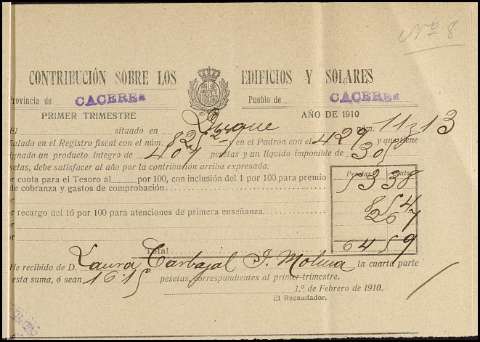 Nº 8
CONTRIBUCIÓN SOBRE LOS EDIFICIOS Y SOLARES
Provincia de CACERES Pueblo de CACERES
PRIMER TRIMESTRE AÑO DE 1910
El situado en Duque núm. 11 y 13
señalado en el Registro fiscal con el núm. en el Padrón con 427 y que tiene
asignada un producto íntegro de pesetas y un líquido imponible de
pesetas, debe satisfacer al año por la contribución arriba expresada.
de cuota para el Tesoro al por 100, con inclusión del 1 por 100 para premio
de cobranza y gastos de comprobación
por recargo del 16 por 100 para atenciones de primera enseñanza.
por
Total 64 59
He recibido de D. Laura Carbajal T. Molina la cuarta parte
de esta suma, ó sean 16'15 pesetas, correspondientes al primer trimestre.
1.º de Febrero de 1910.
El Recaudador.